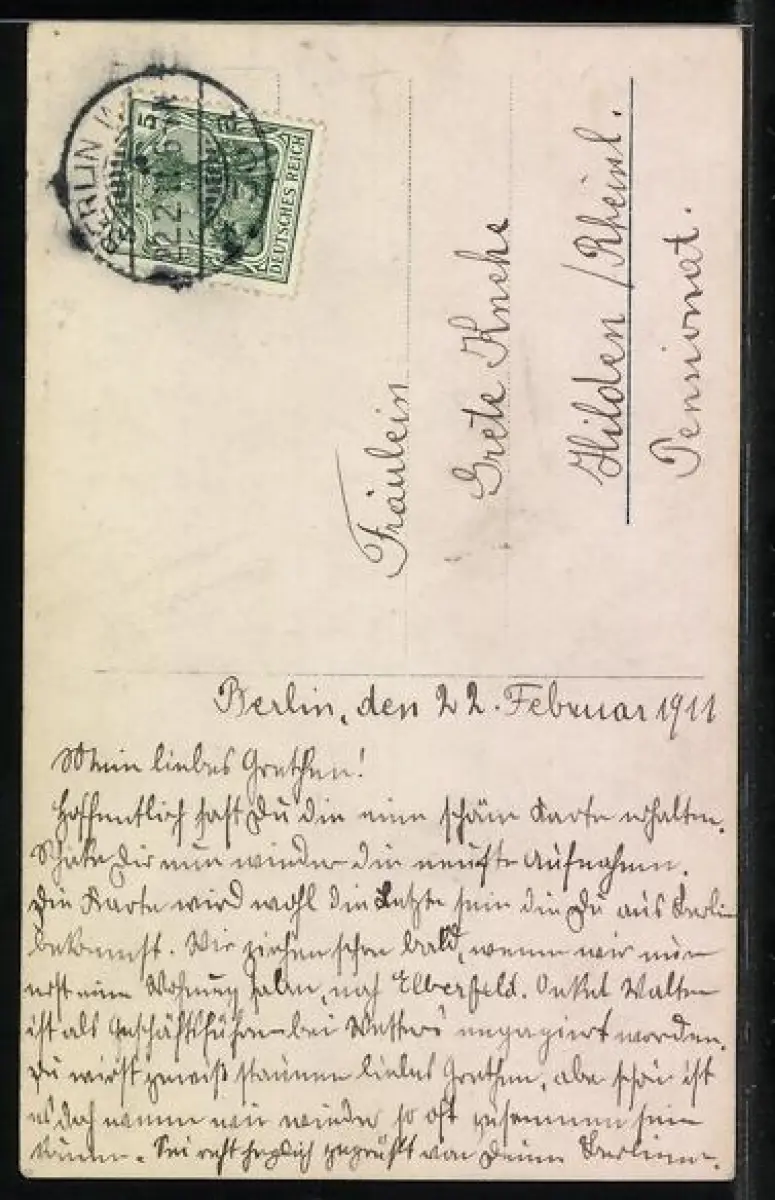 BERLIN W.
22.2.11. 6-7N
5
DEUTSCHES REICH
Fräulein
Grete Knehs
Hilden / Rheinl.
Pensionat.
Berlin, den 22. Februar 1911
Mein liebes Grethen!
Hoffentlich hast Du die eine schöne Karte erhalten.
Schicke Dir nun wieder die neuste Aufnahmen.
Die Karte wird wohl die Letzte sein die Du aus Berlin
bekommst. Wir ziehen schon bald, wenn wir nur
erst eine Wohnung haben, nach Elberfeld. Onkel Walter
ist als Geschäftsführer bei engagiert worden.
Du wirst gewiß staunen liebes Grethen, aber schön ist
es doch wenn wir wieder so oft zusammen sein
können. Sei recht herzlich gegrüßt von Deinen Berlinern.